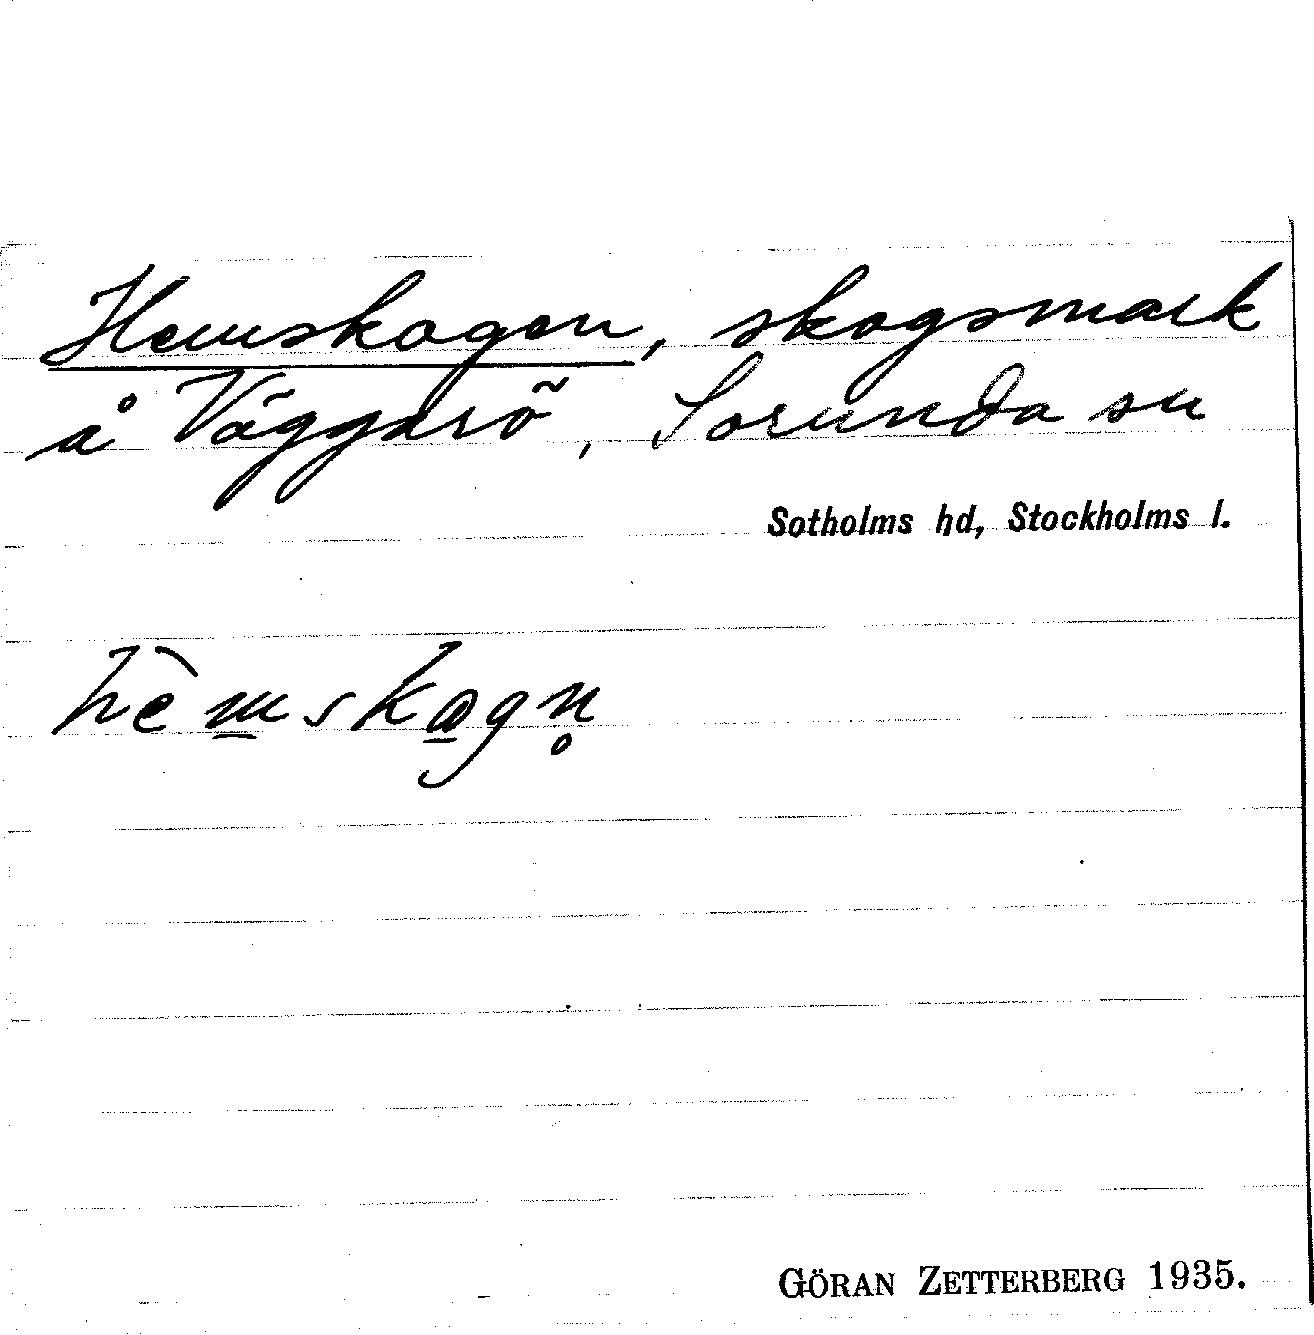 Hemskogen, skogsmark
å Väggarö, Sorunda sn
Sotholms hd, Stockholms l.
hè̀m̲ska̲gn̥
GÖRAN ZETTERBERG 1935.